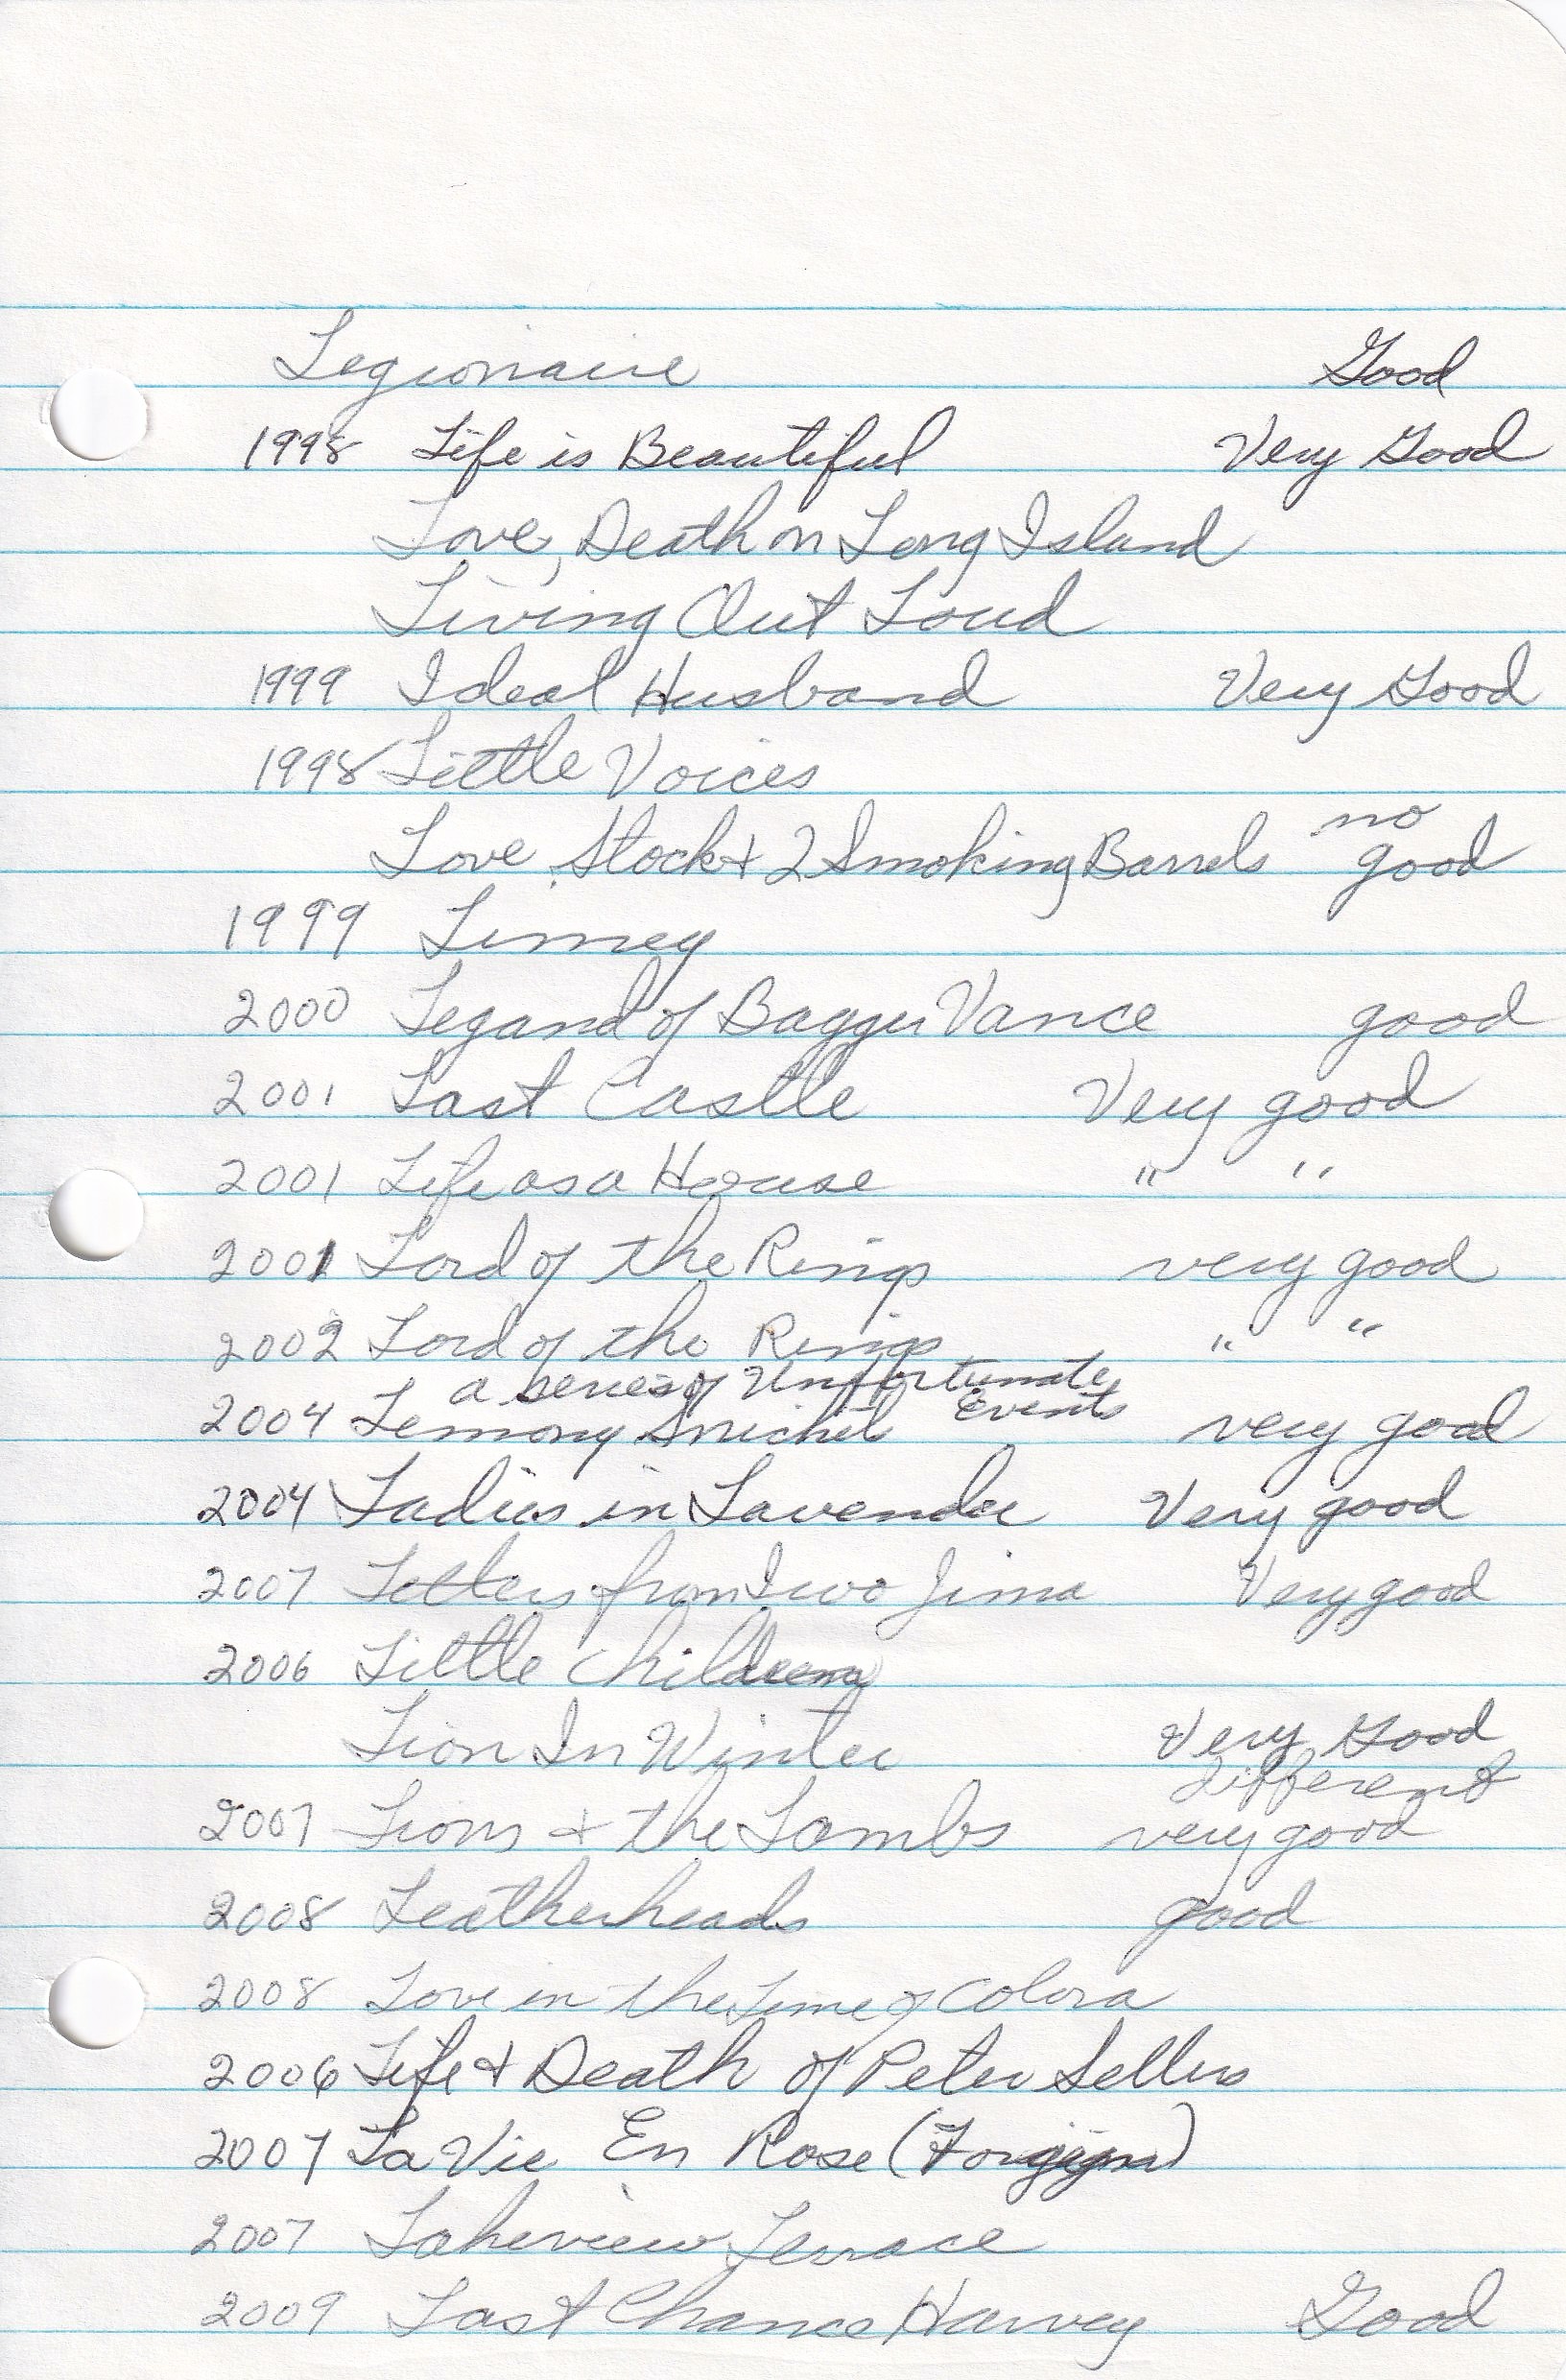 Legionaire Good
1998 Life is Beautiful Very Good
Love, Death on Long Island
Living Out Loud
1999 Ideal Husband Very Good
1998 Little Voices
Love, Stock + 2 Smoking Barrels no good
1999 Limey
2000 Legand of Bagger Vance good
2001 Last Castle Very good
2001 Life as a House " "
2001 Lord of the Rings very good
2002 Lord of the Rings " "
a series of Unfortunate Events
2004 Lemony Snichet very good
2004 Ladies in Lavender Very good
2007 Letters from Iwo Jima Very good
2006 Little Children
Lion In Winter Very Good
different
2007 Lions + the Lambs very good
2008 Leatherheads good
2008 Love in the Time of Colora
2006 Life + Death of Peter Sellers
2007 La Vie En Rose (Forgign)
2007 Lakeview Terrace
2009 Last Chance Harvey Good